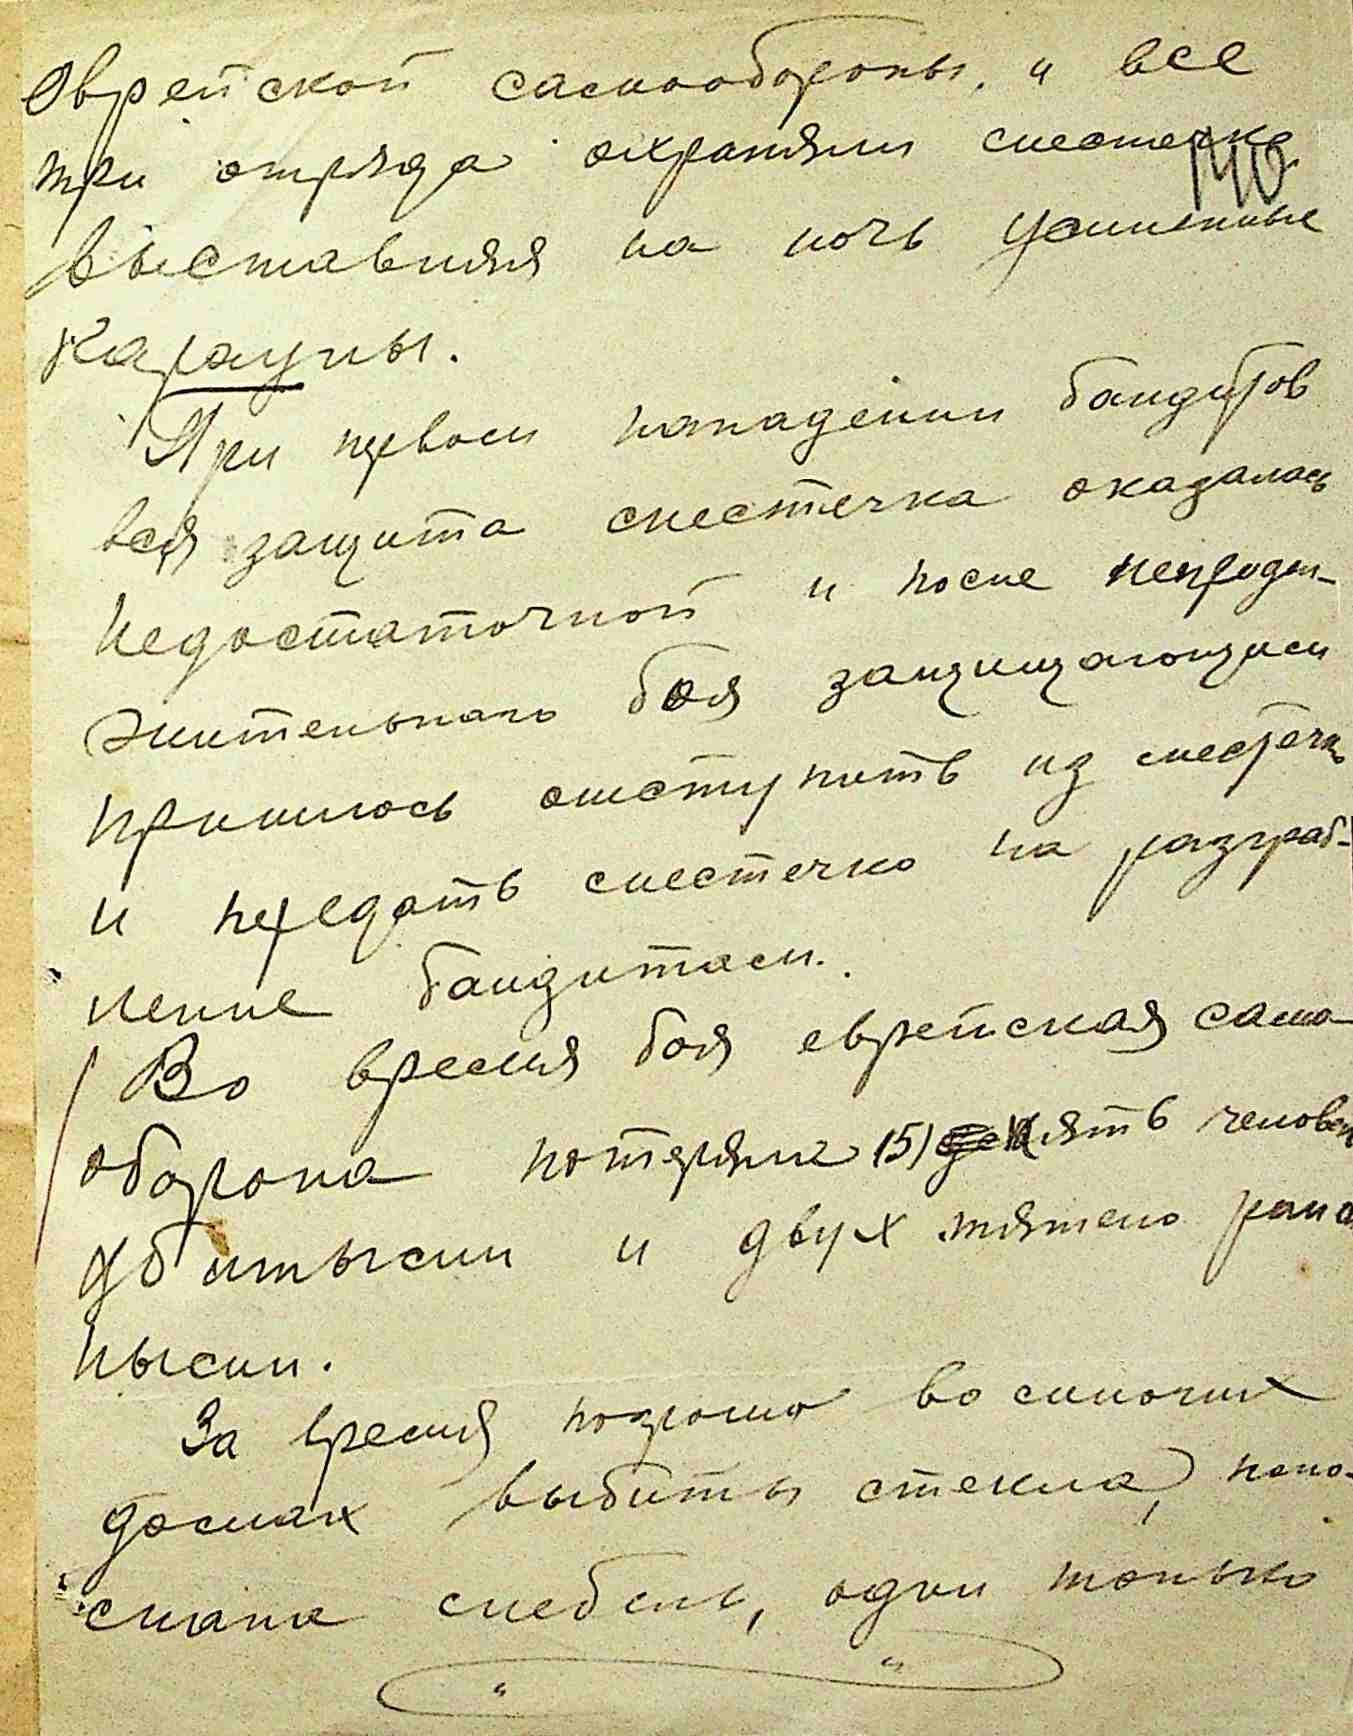 Еврейской самообороны, и все
140
три отряда охраняли местечко
выставляя на ночь усиленные
караулы.
При первом нападении бандитов
вся защита местечка оказалась
недостаточной и после непродол-
жительнаго боя защищающимся
пришлось отступить из местечка
и передать местечко на разграб-
ление бандитам.
Во время боя еврейская само-
оборона потеряла (5) пять человек
убитыми и двух тяжело ране-
ными.
За время погрома во многих
домах выбиты стекла, поло-
мана мебель, один только